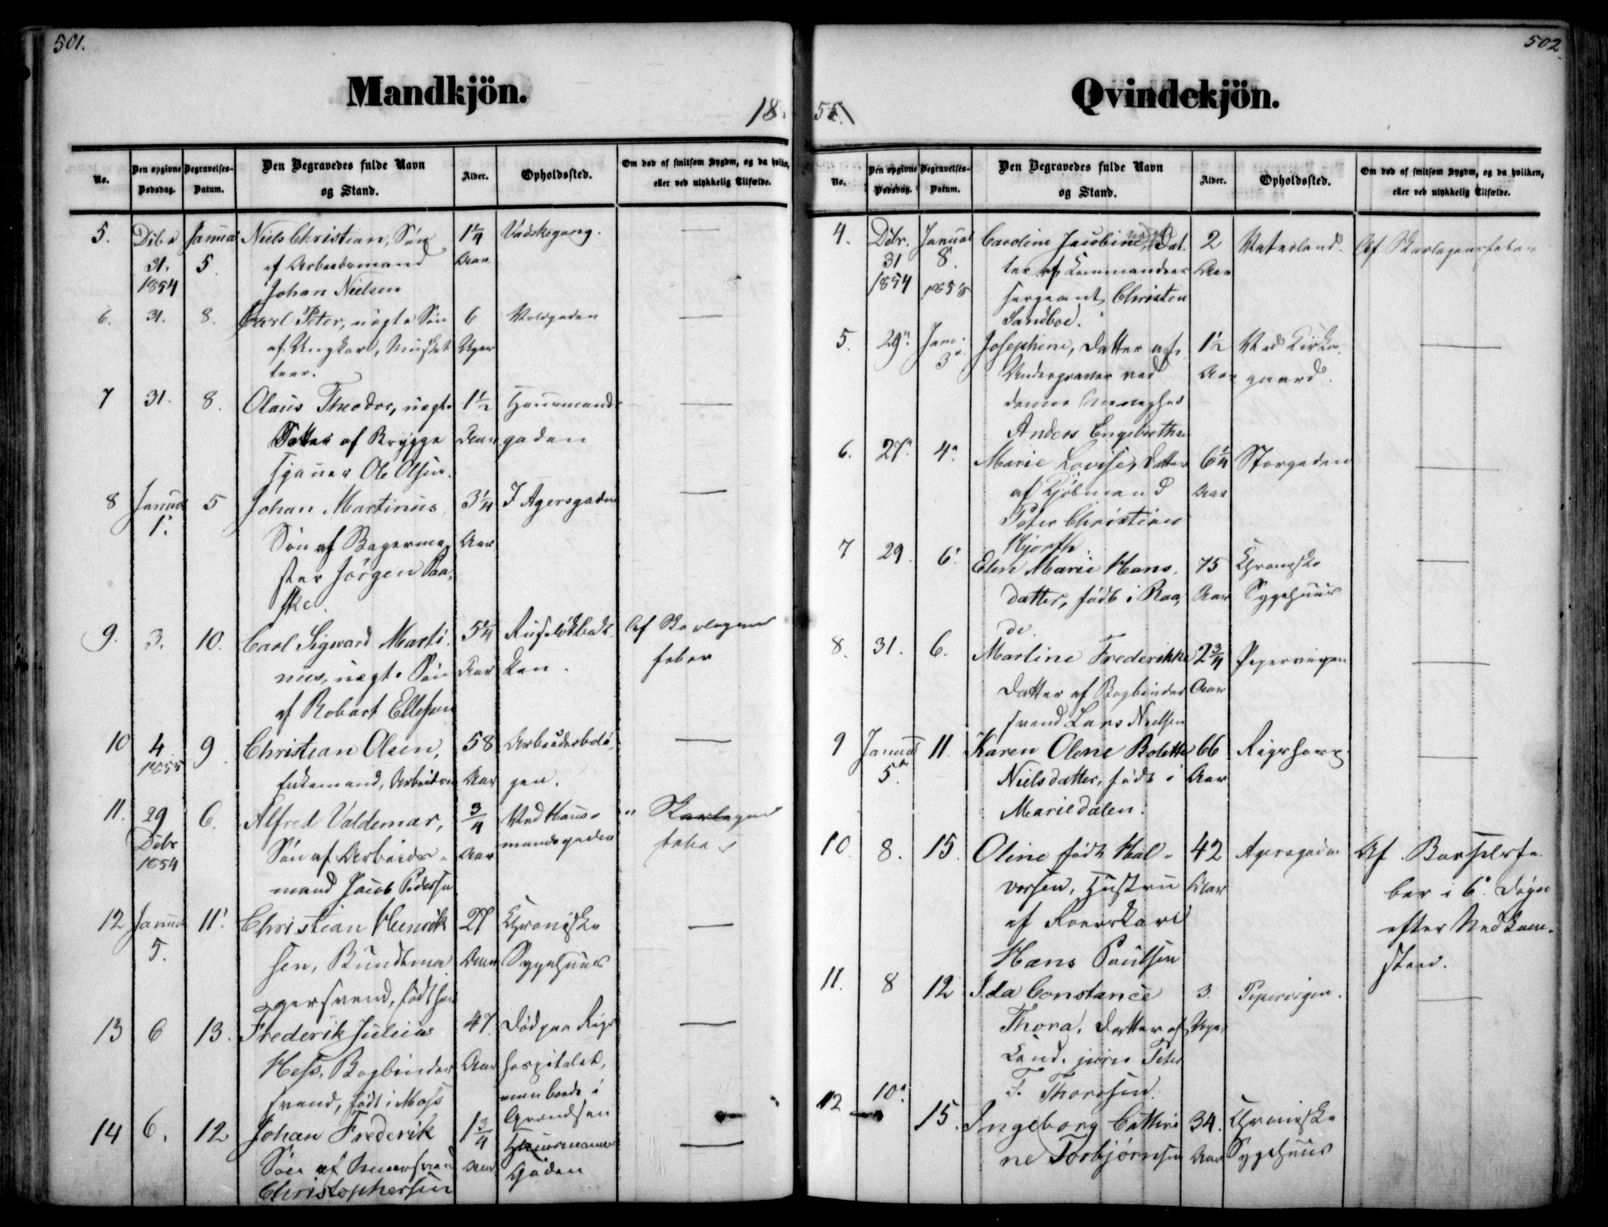 501.
Mandkjön.
18
No.
Den opgivne Dødsdag.
Begravelses-Datum.
Den Begravedes fulde Navn og Stand.
Alder.
Opholdssted.
Om død af smitsom Sygdom, og da hvilken, eller ved ulykkelig Tilfælde.
5. Dcbr 31. 1854 Januar 5. Niels Christian, Søn
af Arbeidsmand
Johan Nielsen
1 1/4 Aar
6. 31. 8. Carl Peter, uægte Søn
6 Uger Voldgaden —
7 31. 8. Olaus Theodor, uægte
af Brygge
Ole Olsen.
1 1/2 Aar Hausmands
gaden —
8 Januar 1. 5 Johan Martinus
Søn af Bagerme
ster Jörgen Paa
ske.
3 1/4 Aar I Agersgaden —
9. 3. 10. Carl Sigward Marti
nius, uægte Søn
af Robert Ellefsen
5 1/4 Aar Ruseløkbak
ken. Af Skarlagens
feber
10 4 1855 9. Christian Olsen,
Enkemand, Arbeidsm
58 Aar Arbeiderboli
gen. —
11. 29 Dcbr 1854 6. Alfred Valdemar,
Søn af Arbeids-
mand Jacob Pedersen
3/4 Aar Ved Haus-
mandsgaden " Skarlagens
feber
12 Januar 5. 11. Christian Henrik
sen, Bundtma
gersvend, født her
27 Aar Chroniske
Sygehuus —
13 6 13. Frederik Julius
Hess, Bogbinder
svend, født i Moss
47 Aar Død paa Rigs
hospitalet,
men boede i
Grændsen —
14 6. 12 Johan Frederik
Søn af
Christophersen
1 3/4 Aar Hausmanns
Gaden —
502
Qvindekjön.
55.
No.
Den opgivne Dødsdag.
Begravelses-Datum.
Den Begravedes fulde Navn og Stand.
Alder.
Opholdssted.
Om død af smitsom Sygdom, og da hvilken, eller ved ulykkelig Tilfælde.
4. Dcbr. 31 1854 Januar 8. 1855 Caroline Jacobine, Dat
ter af Commandeer
sergeant Christen
Sandboe.
2 Aar Vaterland. Af Skarlagensfeber
5. 29 Janr. 3 Josephine, Datter af
Undergraver ved
denne Menighed
Anders Engebrethsen
1 1/2 Aar Ved Kirke
gaard. —
6. 27. 4. Marie Lovise, Datter
af Kjöbmand
Peter Christian
Hjorth.
6 1/4 Aar Storgaden —
7 29. 6. Elen Marie Hans
datter, født i Raa
de.
75 Aar Chroniske
Sygehuus —
8. 31. 6. Martine Frederikke
Datter af Bogbinder
svend Lars Nielsen
2 3/4 Aar Pipervigen —
9 Januar 5. 11. Karen Olene Bolette
Nielsdatter, født i
Mariedalen.
66 Aar Rigshosp. —
10. 8. 15. Oline født Hal-
vorsen, Hustru
af
Hans Paulsen
42 Aar Agersgaden Af Barselsfe
ber i 6. Døgn
efter Nedkom-
sten.
11. 8 12 Ida Constance
Thora, Datter af
Cand. juris Peter
F. Thoresen.
3 Uger Pipervigen. —
12 10. 15. Ingeborg Cathri
ne Torbjörnsen
34. Aar Chroniske
Sygehuus